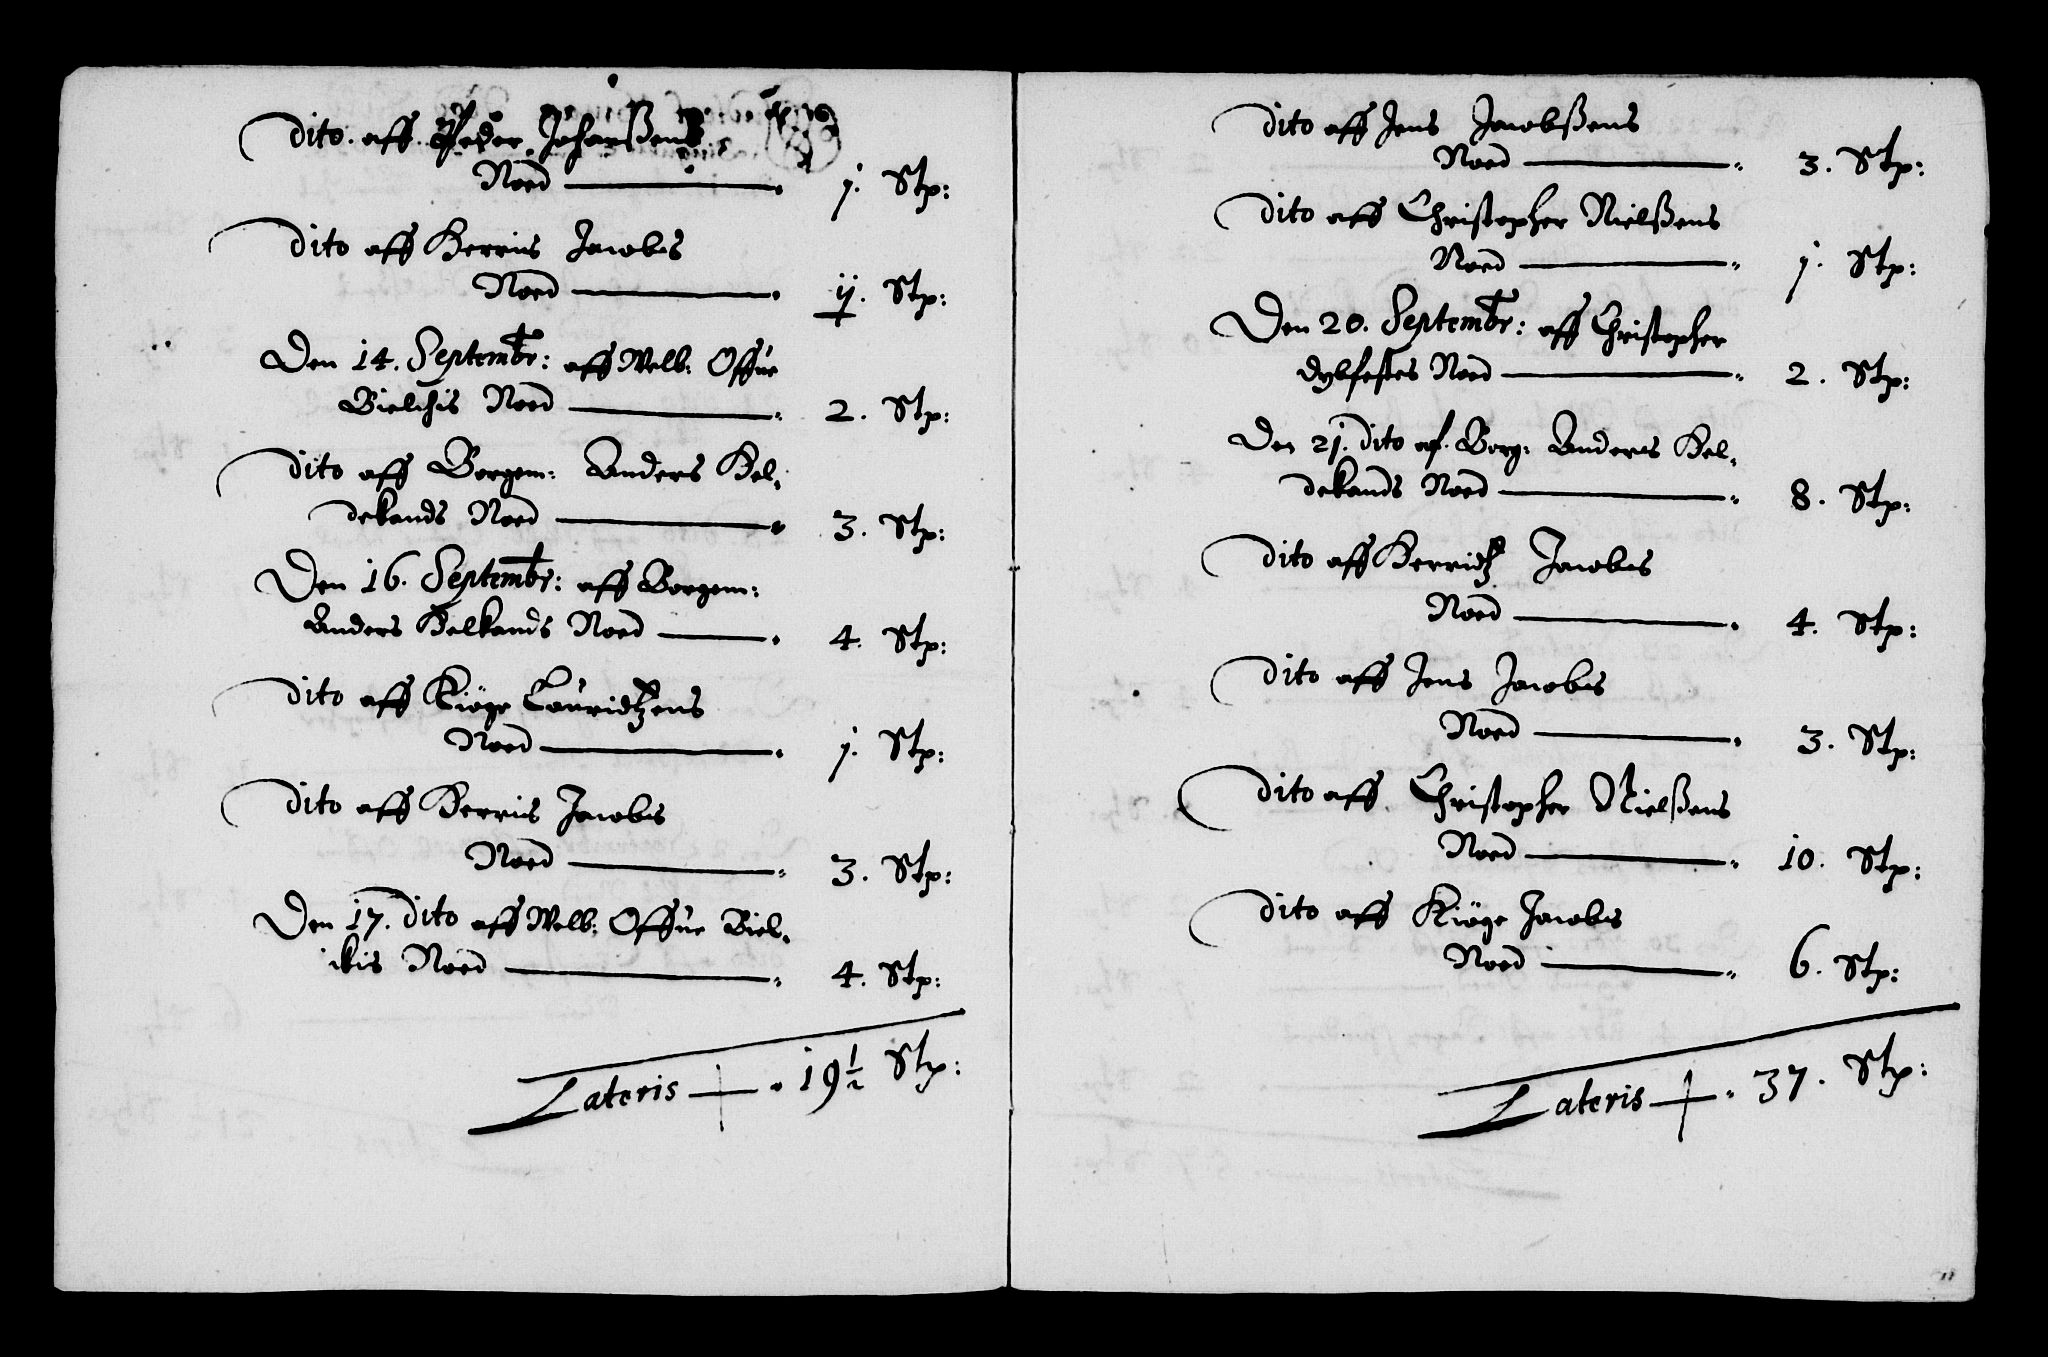 Dito aff Peder Johanßens
Noed — j. Stp:
Dito aff Herrius Jacobs
Noed — ij. Stp:
Den 14. Septembr: aff Welb: Offue
Bielchis Noed — 2. Stp:
Dito aff Borgem: Anders Hel-
dekands Noed — 3. Stp:
Den 16. Septembr: aff Borgem:
Anders Helkands Noed — 4. Stp:
Dito aff Kiöge Lauridtzens
Noed — j. Stp:
Dito aff Herrius Jacobs
Noed — 3. Stp:
Den 17. Dito aff Welb: Offue Biel-
ikis Noed — 4. Stp:
Lateris — 19½ Stp:
Dito aff Jens Jacobßens
Noed — 3. Stp:
Dito aff Christopher Nielßens
Noed — j. Stp:
Den 20. Septembr: aff Christopher
Dybfestes Noed — 2. Stp:
Den 2j. Dito af. Borg: Anders Hel-
dekands Noed — 8. Stp:
Dito aff Herridtz Jacobs
Noed — 4. Stp:
Dito aff Jens Jacobs
Noed — 3. Stp:
Dito aff Christopher Nielßens
Noed — 10. Stp:
Dito aff Kiöge Jacobs
Noed — 6. Stp:
Lateris — 37. Stp: